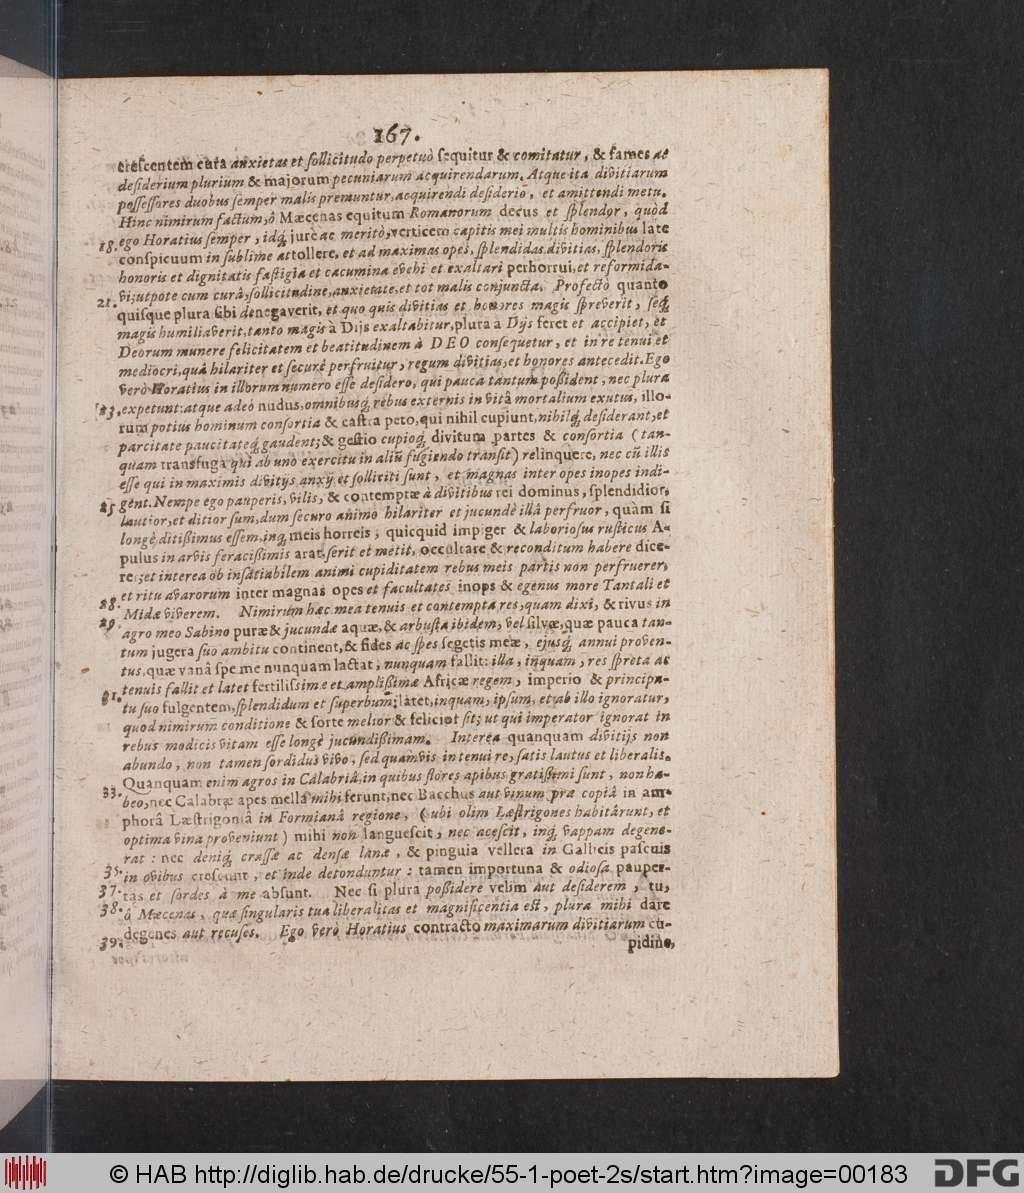 167.
crescentem cura anxietas et sollicitudo perpetuò sequitur & comitatur, & fames ac
desiderium plurium & majorum pecuniarum acquirendarum. Atque ita divitiarum
possessores duobus semper malis premuntur, acquirendi desiderio, et amittendi metu.
Hinc nimirum factum, ô Mæcenas equitum Romanorum decus et splendor, quòd
18. ego Horatius semper, idq́; jurè ac meritò, verticem capitis mei multis hominibus late
conspicuum in sublime attollere, et ad maximas opes, splendidas divitias, splendoris
honoris et dignitatis fastigia et cacumina evehi et exaltari perhorrui, et reformida-
21. vi; utpote cum curâ, sollicitudine, anxietate, et tot malis conjuncta. Profectò quanto
quisque plura sibi denegaverit, et quo quis divitias et honores magis spreverit, seq́;
magis humiliaverit, tanto magis à Dijs exaltabitur, plura à Dijs feret et accipiet, et
Deorum munere felicitatem et beatitudinem à DEO consequetur, et in re tenui et
mediocri, quâ hilariter et securè perfruitur, regum divitias, et honores antecedit. Ego
verò Horatius in illorum numero esse desidero, qui pauca tantum poßident, nec plura
23. expetunt: atque adeò nudus, omnibusq́; rebus externis in vitâ mortalium exutus, illo-
rum potius hominum consortia & castra peto, qui nihil cupiunt, nihilq́; desiderant, et
parcitate paucitateq́; gaudent; & gestio cupioq́; divitum partes & consortia (tan-
quam transfuga qui ab uno exercitu in aliũ fugiendo transit) relinquere, nec cũ illis
esse qui in maximis divitijs anxij et solliciti sunt, et magnas inter opes inopes indi-
25 gent. Nempe ego pauperis, vilis, & contemptæ à divitibus rei dominus, splendidior,
lautior, et ditior sum, dum securo animo hilariter et jucundè illâ perfruor, quàm si
longè ditißimus essem, inq́; meis horreis, quicquid impiger & laboriosus rusticus A-
pulus in arvis feracißimis arat, serit et metit, occultare & reconditum habere dice-
rer; et interea ob insatiabilem animi cupiditatem rebus meis partis non perfruerer,
et ritu avarorum inter magnas opes et facultates inops & egenus more Tantali et
28. Midæ viverem. Nimirum hæc mea tenuis et contempta res, quam dixi, & rivus in
29. agro meo Sabino puræ & jucundæ aquæ, & arbusta ibidem, vel silvæ, quæ pauca tan-
tum jugera suo ambitu continent, & fides ac spes segetis meæ, ejusq́; annui proven-
tus, quæ vanâ spe me nunquam lactat, nunquam fallit: illa, inquam, res spreta ac
31. tenuis fallit et latet fertilissimæ et amplißimæ Africæ regem, imperio & principa-
tu suo fulgentem, splendidum et superbum; latet, inquam, ipsum, et ab illo ignoratur,
quod nimirum conditione & sorte melior & felicior sit; ut qui imperator ignorat in
rebus modicis vitam esse longè jucundißimam. Interea quanquam divitijs non
abundo, non tamen sordidus vivo, sed quamvis in tenui re, satis lautus et liberalis.
33. Quanquam enim agros in Calabriâ, in quibus flores apibus gratißimi sunt, non ha-
beo, nec Calabræ apes mella mihi ferunt, nec Bacchus aut vinum præ copiâ in am-
phorâ Læstrigoniâ in Formianâ regione, (ubi olim Læstrigones habitârunt, et
optima vina proveniunt) mihi non languescit, nec acescit, inq́; vappam degene-
rat: nec deniq́; crassæ ac densæ lanæ, & pinguia vellera in Gallicis pascuis
35. in ovibus crescunt, et inde detonduntur: tamen importuna & odiosa pauper-
37. tas et sordes à me absunt. Nec si plura poßidere velim aut desiderem, tu,
38. ô Mæcenas, quæ singularis tua liberalitas et magnificentia est, plura mihi dare
39. degenes aut recuses. Ego verò Horatius contracto maximarum divitiarum cu-
pidine,
© HAB http://diglib.hab.de/drucke/55-1-poet-2s/start.htm?image=00183
DFG